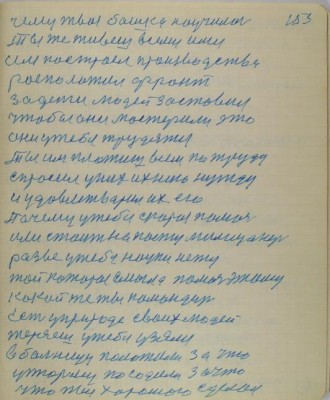 чему твоя башка научилас 183
ты же живеш всеми ими
им построел производства
росположил фронт
за дети людей заставил
чтобы они мастерили это
они утебя трудятся
ты им платиш всем по труду
спросил уних ихнею нужду
и удовлетварил их его
почему утебя скорая помоч
или стоит на посту милицанер
разве утебя науки нету
той котора смогла помоч этому
какой те ты командир
есть уприроде своих людей
теряеш утебя узяли
в балницу положили за что
у тюрму посодили за что
что ты хорошого сделал